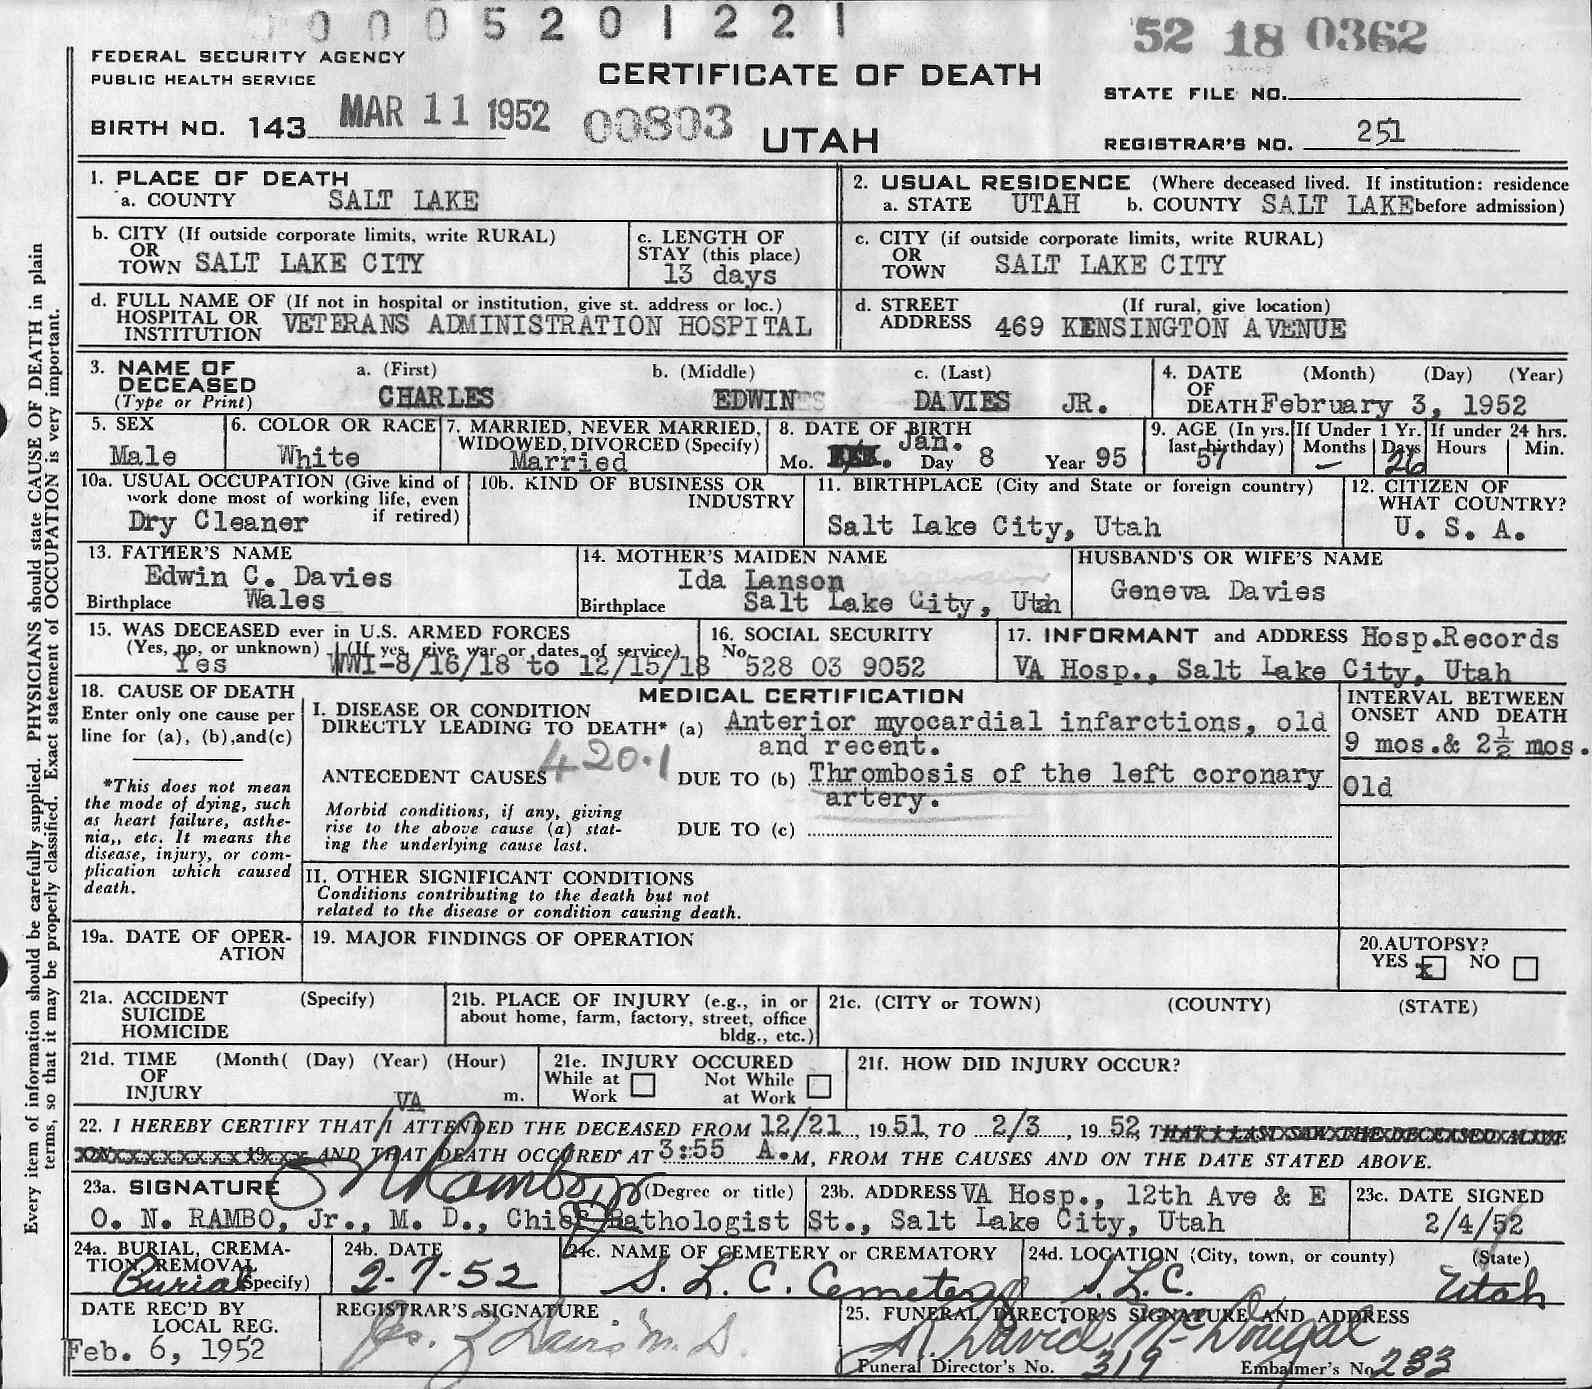 000520 1221
52 18 0362
FEDERAL SECURITY AGENCY
PUBLIC HEALTH SERVICE
CERTIFICATE OF DEATH
STATE FILE NO.
BIRTH NO. 143 MAR 11 1952 00803 UTAH
REGISTRAR'S NO. 251
1. PLACE OF DEATH
a. COUNTY SALT LAKE
2. USUAL RESIDENCE (Where deceased lived. If institution: residence
a. STATE UTAH b. COUNTY SALT LAKE before admission)
b. CITY (If outside corporate limits, write RURAL)
OR
TOWN SALT LAKE CITY
c. LENGTH OF
STAY (this place)
13 days
c. CITY (if outside corporate limits, write RURAL)
OR
TOWN SALT LAKE CITY
d. FULL NAME OF (If not in hospital or institution, give st. address or loc.)
HOSPITAL OR
INSTITUTION VETERANS ADMINISTRATION HOSPITAL
d. STREET (If rural, give location)
ADDRESS 469 KENSINGTON AVENUE
3. NAME OF
DECEASED
(Type or Print)
a. (First) b. (Middle) c. (Last)
CHARLES EDWIN DAVIES JR.
4. DATE (Month) (Day) (Year)
OF
DEATH February 3, 1952
5. SEX
Male
6. COLOR OR RACE
White
7. MARRIED, NEVER MARRIED,
WIDOWED, DIVORCED (Specify)
Married
8. DATE OF BIRTH
Jan.
Mo. Day 8 Year 95
9. AGE (In yrs.
last birthday)
57
If Under 1 Yr.
Months Days
— 26
If under 24 hrs.
Hours Min.
10a. USUAL OCCUPATION (Give kind of
work done most of working life, even
if retired)
Dry Cleaner
10b. KIND OF BUSINESS OR
INDUSTRY
11. BIRTHPLACE (City and State or foreign country)
Salt Lake City, Utah
12. CITIZEN OF
WHAT COUNTRY?
U. S. A.
13. FATHER'S NAME
Edwin C. Davies
Birthplace Wales
14. MOTHER'S MAIDEN NAME
Ida Lanson
Birthplace Salt Lake City, Utah
HUSBAND'S OR WIFE'S NAME
Geneva Davies
15. WAS DECEASED ever in U.S. ARMED FORCES
(Yes, no, or unknown) (If yes, give war or dates of service)
Yes WWI-8/16/18 to 12/15/18
16. SOCIAL SECURITY
No. 528 03 9052
17. INFORMANT and ADDRESS Hosp.Records
VA Hosp., Salt Lake City, Utah
18. CAUSE OF DEATH
Enter only one cause per
line for (a), (b),and(c)
*This does not mean
the mode of dying, such
as heart failure, asthe-
nia,, etc. It means the
disease, injury, or com-
plication which caused
death.
MEDICAL CERTIFICATION
I. DISEASE OR CONDITION
DIRECTLY LEADING TO DEATH* (a) Anterior myocardial infarctions, old
and recent.
420.1
ANTECEDENT CAUSES DUE TO (b) Thrombosis of the left coronary
artery.
Morbid conditions, if any, giving
rise to the above cause (a) stat-
ing the underlying cause last.
DUE TO (c)
INTERVAL BETWEEN
ONSET AND DEATH
9 mos.& 2½ mos.
Old
II. OTHER SIGNIFICANT CONDITIONS
Conditions contributing to the death but not
related to the disease or condition causing death.
19a. DATE OF OPER-
ATION
19. MAJOR FINDINGS OF OPERATION
20.AUTOPSY?
YES x NO
21a. ACCIDENT (Specify)
SUICIDE
HOMICIDE
21b. PLACE OF INJURY (e.g., in or
about home, farm, factory, street, office
bldg., etc.)
21c. (CITY or TOWN) (COUNTY) (STATE)
21d. TIME (Month( (Day) (Year) (Hour)
OF
INJURY m.
21e. INJURY OCCURED
While at Work Not While at Work
21f. HOW DID INJURY OCCUR?
VA
22. I HEREBY CERTIFY THAT I ATTENDED THE DECEASED FROM 12/21, 1951, TO 2/3, 1952, THAT I LAST SAW THE DECEASED ALIVE
ON 19 AND THAT DEATH OCCURED AT 3:55 A.M, FROM THE CAUSES AND ON THE DATE STATED ABOVE.
23a. SIGNATURE O N Rambo Jr (Degree or title)
O. N. RAMBO, Jr., M. D., Chief Pathologist
23b. ADDRESS VA Hosp., 12th Ave & E
St., Salt Lake City, Utah
23c. DATE SIGNED
2/4/52
24a. BURIAL, CREMA-
TION, REMOVAL
(Specify)
Burial
24b. DATE
2-7-52
24c. NAME OF CEMETERY or CREMATORY
S. L. C. Cemetery
24d. LOCATION (City, town, or county) (State)
S.L.C. Utah
DATE REC'D BY
LOCAL REG.
Feb. 6, 1952
REGISTRAR'S SIGNATURE
25. FUNERAL DIRECTOR'S SIGNATURE AND ADDRESS
David McDougal
Funeral Director's No. 319 Embalmer's No. 233
Every item of information should be carefully supplied. PHYSICIANS should state CAUSE OF DEATH in plain
terms, so that it may be properly classified. Exact statement of OCCUPATION is very important.